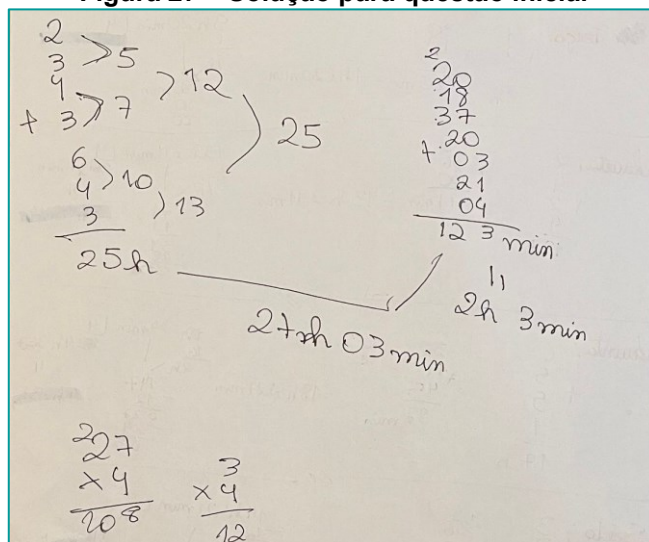 Figura 27 – Solução para questão inicial
2
3 > 5
4
+ 3 > 7
> 12
6
4 > 10
3
> 13
) 25
25h
2
20
18
37
+ 20
03
21
04
123 min
2h 3min
27h 03min
2
27
x4
108
3
x4
12